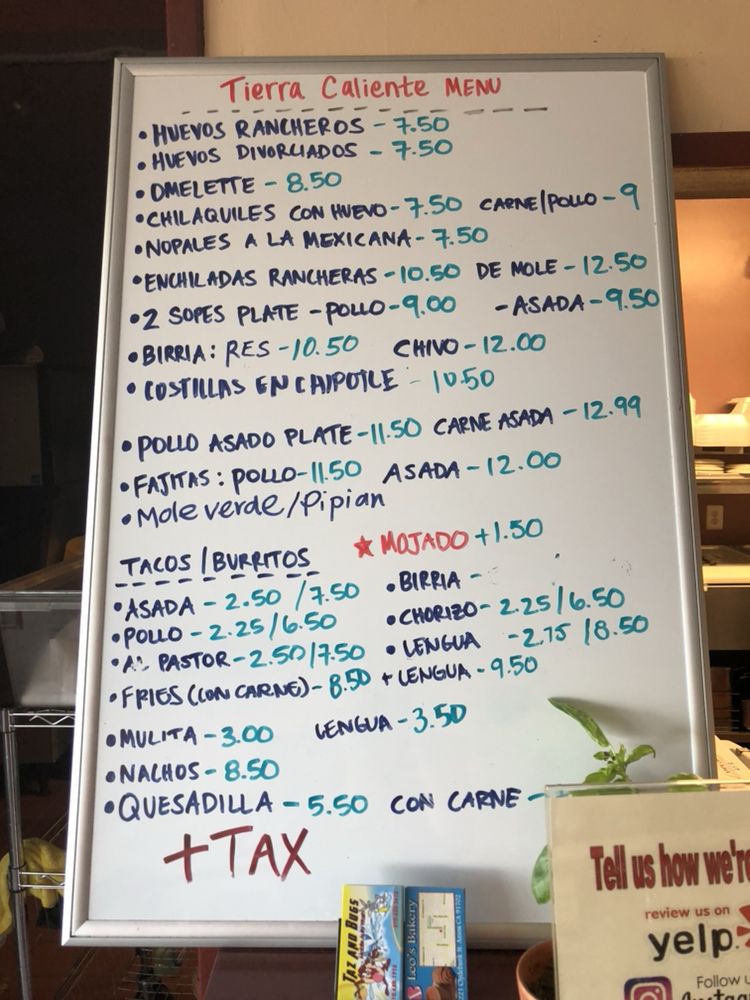 Tierra Caliente MENU
• HUEVOS RANCHEROS - 7.50
• HUEVOS DIVORCIADOS - 7.50
• OMELETTE - 8.50
• CHILAQUILES CON HUEVO - 7.50 CARNE/POLLO - 9
• NOPALES A LA MEXICANA - 7.50
• ENCHILADAS RANCHERAS - 10.50 DE MOLE - 12.50
• 2 SOPES PLATE - POLLO - 9.00 - ASADA - 9.50
• BIRRIA: RES - 10.50 CHIVO - 12.00
• COSTILLAS EN CHIPOTLE - 10.50
• POLLO ASADO PLATE - 11.50 CARNE ASADA - 12.99
• FAJITAS: POLLO - 11.50 ASADA - 12.00
• Mole verde/Pipian
TACOS/BURRITOS ★ MOJADO +1.50
• ASADA - 2.50 / 7.50 • BIRRIA -
• POLLO - 2.25/6.50 • CHORIZO - 2.25/6.50
• AL PASTOR - 2.50/7.50 • LENGUA - 2.75 /8.50
• FRIES (CON CARNE) - 8.50 + LENGUA - 9.50
• MULITA - 3.00 LENGUA - 3.50
• NACHOS - 8.50
• QUESADILLA - 5.50 CON CARNE -
+TAX
Tell us how we're
review us on
yelp
Follow
TAZ AND BUGS
Leo's Bakery